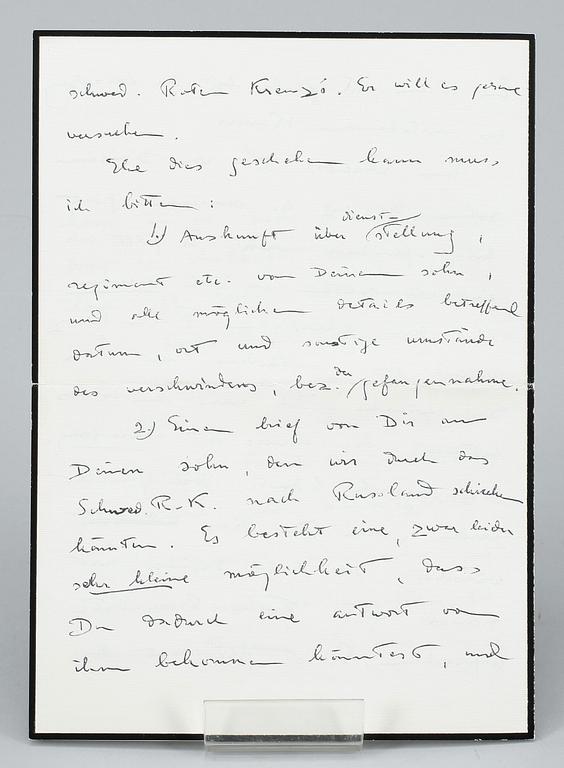 schwed. Roten Kreuzes. Er will es gerne
versuchen.
Ehe dies geschehen kann muss
ich bitten:
1.) Auskunft über dienst-stellung,
regiment etc. von Deinem sohn,
und alle möglichen details betreffend
datum, ort und sonstige umstände
des verschwindens, bez. der gefangennahme.
2.) Einen brief von Dir an
Deinen sohn, den wir durch das
Schwed. R.K. nach Russland schicken
könnten. Es besteht eine, zwar leider
sehr kleine möglichkeit, dass
Du dadurch eine antwort von
ihm bekommen könntest, und